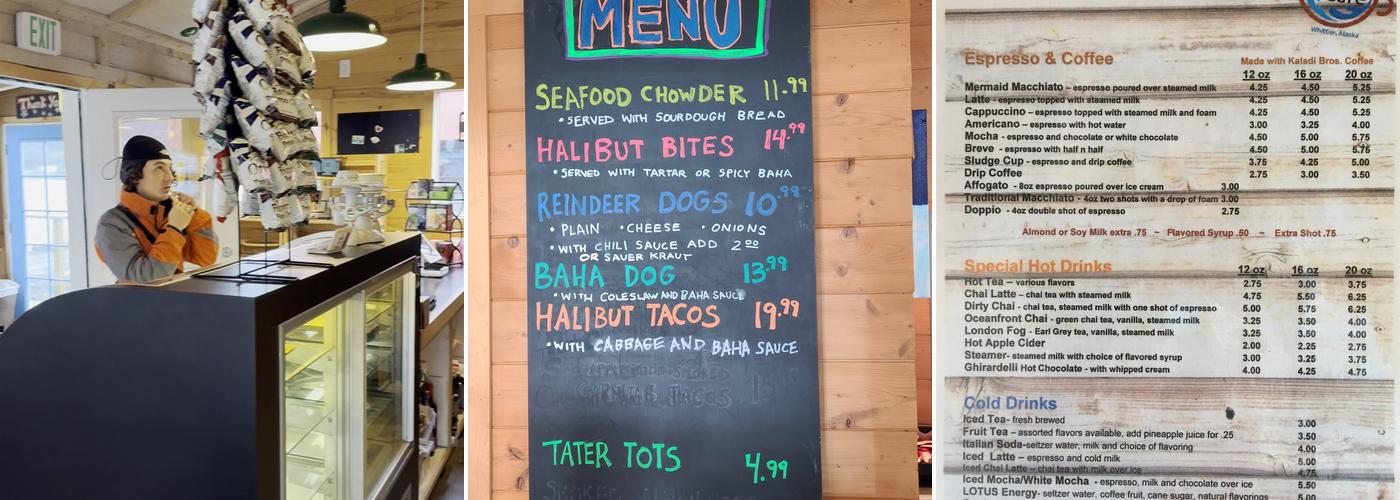 EXIT
Thank
MENU
SEAFOOD CHOWDER 11.99
• SERVED WITH SOURDOUGH BREAD
HALIBUT BITES 14.99
• SERVED WITH TARTAR OR SPICY BAHA
REINDEER DOGS 10.99
• PLAIN • CHEESE • ONIONS
• WITH CHILI SAUCE ADD 2.00
OR SAUER KRAUT
BAHA DOG 13.99
• WITH COLESLAW AND BAHA SAUCE
HALIBUT TACOS 19.99
• WITH CABBAGE AND BAHA SAUCE
TACOS
TATER TOTS 4.99
Whittier, Alaska
Espresso & Coffee
Made with Kaladi Bros. Coffee
12 oz 16 oz 20 oz
Mermaid Macchiato – espresso poured over steamed milk 4.25 4.50 5.25
Latte - espresso topped with steamed milk 4.25 4.50 5.25
Cappuccino – espresso topped with steamed milk and foam 4.25 4.50 5.25
Americano – espresso with hot water 3.00 3.25 4.00
Mocha - espresso and chocolate or white chocolate 4.50 5.00 5.75
Breve - espresso with half n half 4.50 5.00 5.75
Sludge Cup - espresso and drip coffee 3.75 4.25 5.00
Drip Coffee 2.75 3.00 3.50
Affogato - 8oz espresso poured over ice cream 3.00
Traditional Macchiato - 4oz two shots with a drop of foam 3.00
Doppio - 4oz double shot of espresso 2.75
Almond or Soy Milk extra .75 ~ Flavored Syrup .50 ~ Extra Shot .75
Special Hot Drinks 12 oz 16 oz 20 oz
Hot Tea – various flavors 2.75 3.00 3.75
Chai Latte – chai tea with steamed milk 4.75 5.50 6.25
Dirty Chai - chai tea, steamed milk with one shot of espresso 5.00 5.75 6.25
Oceanfront Chai - green chai tea, vanilla, steamed milk 3.25 3.50 4.00
London Fog - Earl Grey tea, vanilla, steamed milk 3.25 3.50 4.00
Hot Apple Cider 2.00 2.25 2.75
Steamer- steamed milk with choice of flavored syrup 3.00 3.25 3.75
Ghirardelli Hot Chocolate - with whipped cream 4.00 4.25 4.75
Cold Drinks
Iced Tea- fresh brewed 3.00
Fruit Tea – assorted flavors available, add pineapple juice for .25 3.50
Italian Soda-seltzer water, milk and choice of flavoring 4.00
Iced Latte – espresso and cold milk 5.00
Iced Chai Latte – chai tea with milk over ice 4.75
Iced Mocha/White Mocha - espresso, milk and chocolate over ice 5.50
LOTUS Energy- seltzer water, coffee fruit, cane sugar, natural flavorings 5.00